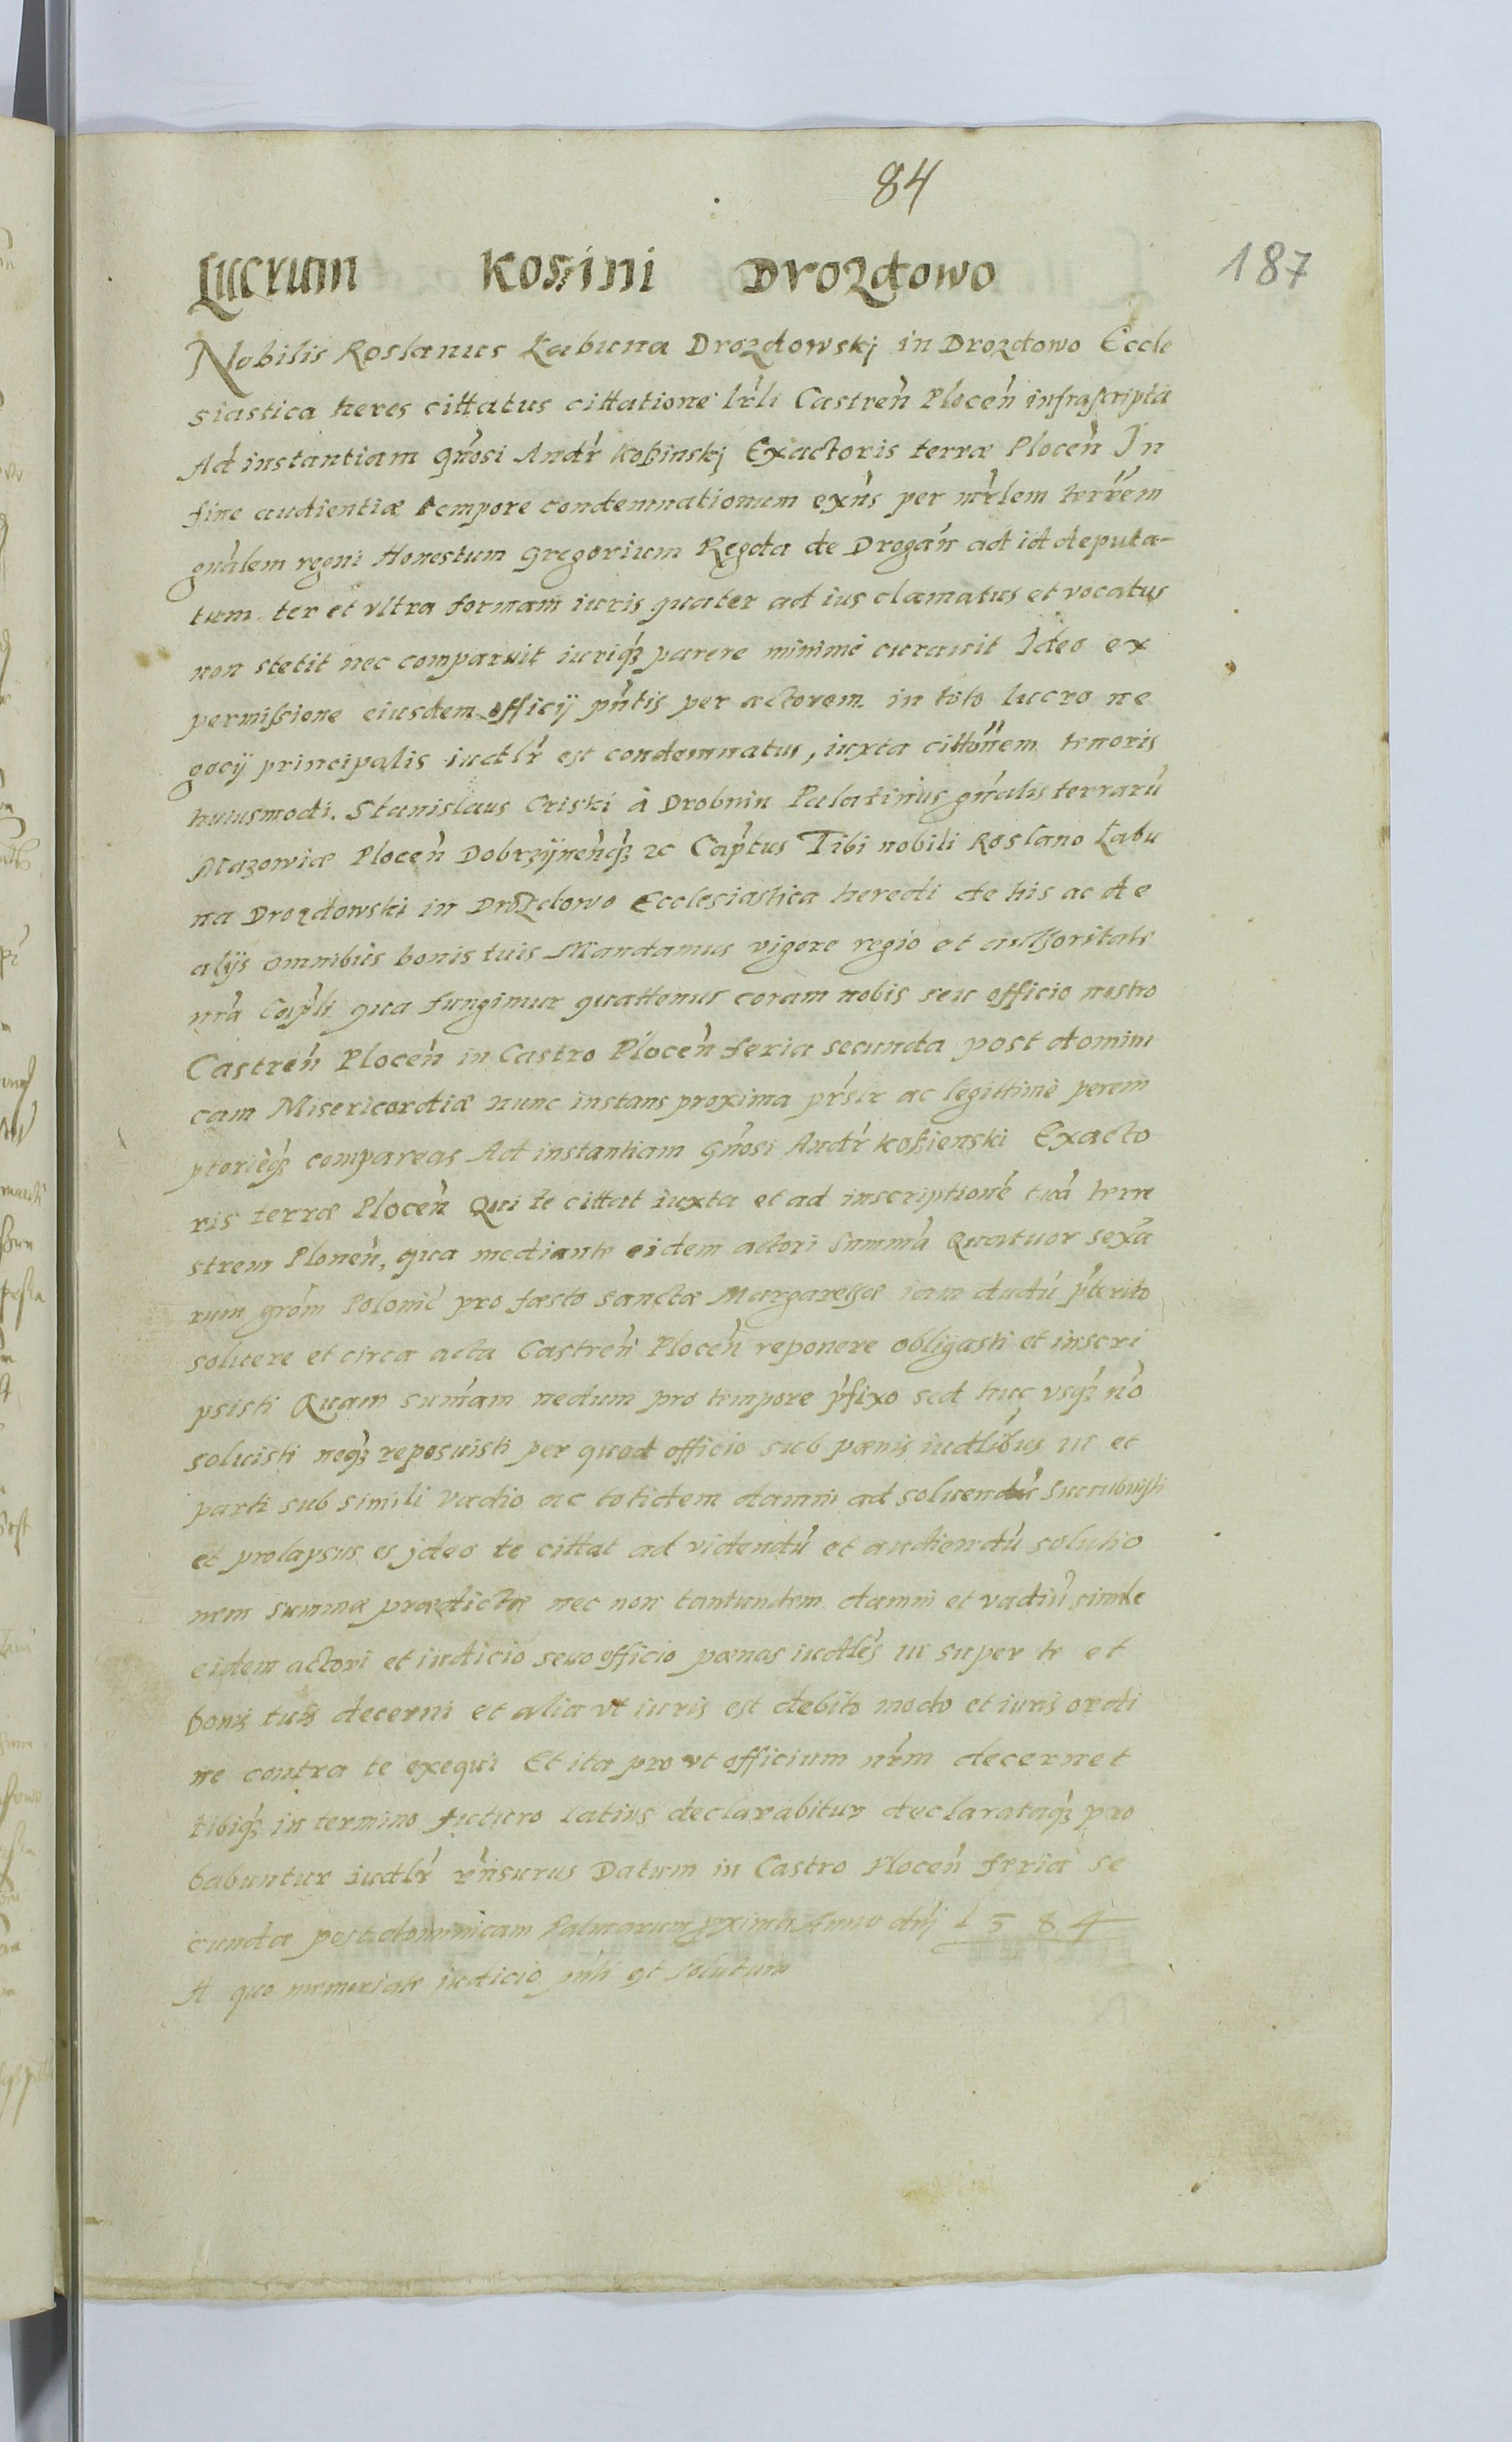 84
187
Lucrum Kossini Drozdowo
Nobilis Roslanus Łabuna Drozdowskj in Drozdowo Eccle
siastica heres cittatus cittatione lrli Castren Plocen infrascripta
Ad instantiam gnosi Andr Koßinskj Exactoris terræ Plocen In
fine audientiæ tempore condemnationum exns per mrlem terrem
gnalem regni Honestum Gregorium Regda de Drogan ad id deputa-
tum ter et vltra formam iuris quater ad ius clamatus et vocatus
non stetit nec comparuit iuriq3 parere minime curauit Ideo ex
permißione eiusdem officij pntis per actorem in toto lucro ne
gocij principalis iudlr est condemnatus, iuxta cittonem tenoris
huiusmodi. Stanislaus Criski á Drobnin Palatinus gnalis terrarū
Mazowiæ Plocen Dobrzijnenq3 2c Captus Tibi nobili Roslano Łabu
na Drozdowski in Drozdowo Ecclesiastica heredi de his ac de
alijs omnibus bonis tuis Mandamus vigore regio et authoritate
nra Capli qua fungimur quattenus coram nobis seu officio nostro
Castren Plocen in Castro Plocen feria secunda post domini
cam Misericordiæ nunc instans proxima prslr ac legittimè perem
ptorièq3 compareas Ad instantiam Gnosi Andr Koßienski Exacto
ris terræ Plocen Qui te cittat iuxta et ad inscriptionē tuā terre
strem Plonen, qua mediante eidem actori Summā Quatuor sexā
rum grōm Polonic pro fæsto sanctæ Margarethæ iam dudū pterito
soluere et circa acta Castren Plocen reponere obligasti et inscri
psisti Quam sumam nedum pro tempore pfixo sed huc vsq3 no
soluisti neq3 reposuisti per quod officio sub pœnis iudlibus ut et
parti sub simili vadio ac totidem damni ad soluendū Succubuisti
et prolapsus es jdeo te cittat ad videndū et audiendū solutio
nem summæ prædictæ nec non tantundem damni et vadiū simile
eidem actori et iudicio seu officio pœnas iudles ut super te et
bonis tuis decerni et alia vt iuris est debito modo et iuris ordi
ne contra te exequi Et ita pro vt officium nrm decernet
tibiq3 in termino futuro latius declarabitur declarataq3 pro
babuntur iudlr rnsurus Datum in Castro Plocen feria se
cunda post dominicam Palmarum pxima Anno dnj 1584
A quo memoriale iudicio pnti est solutum